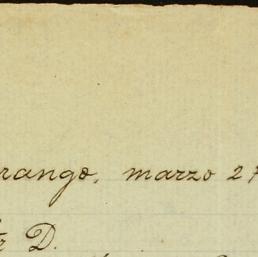 rango, marzo 27
D.